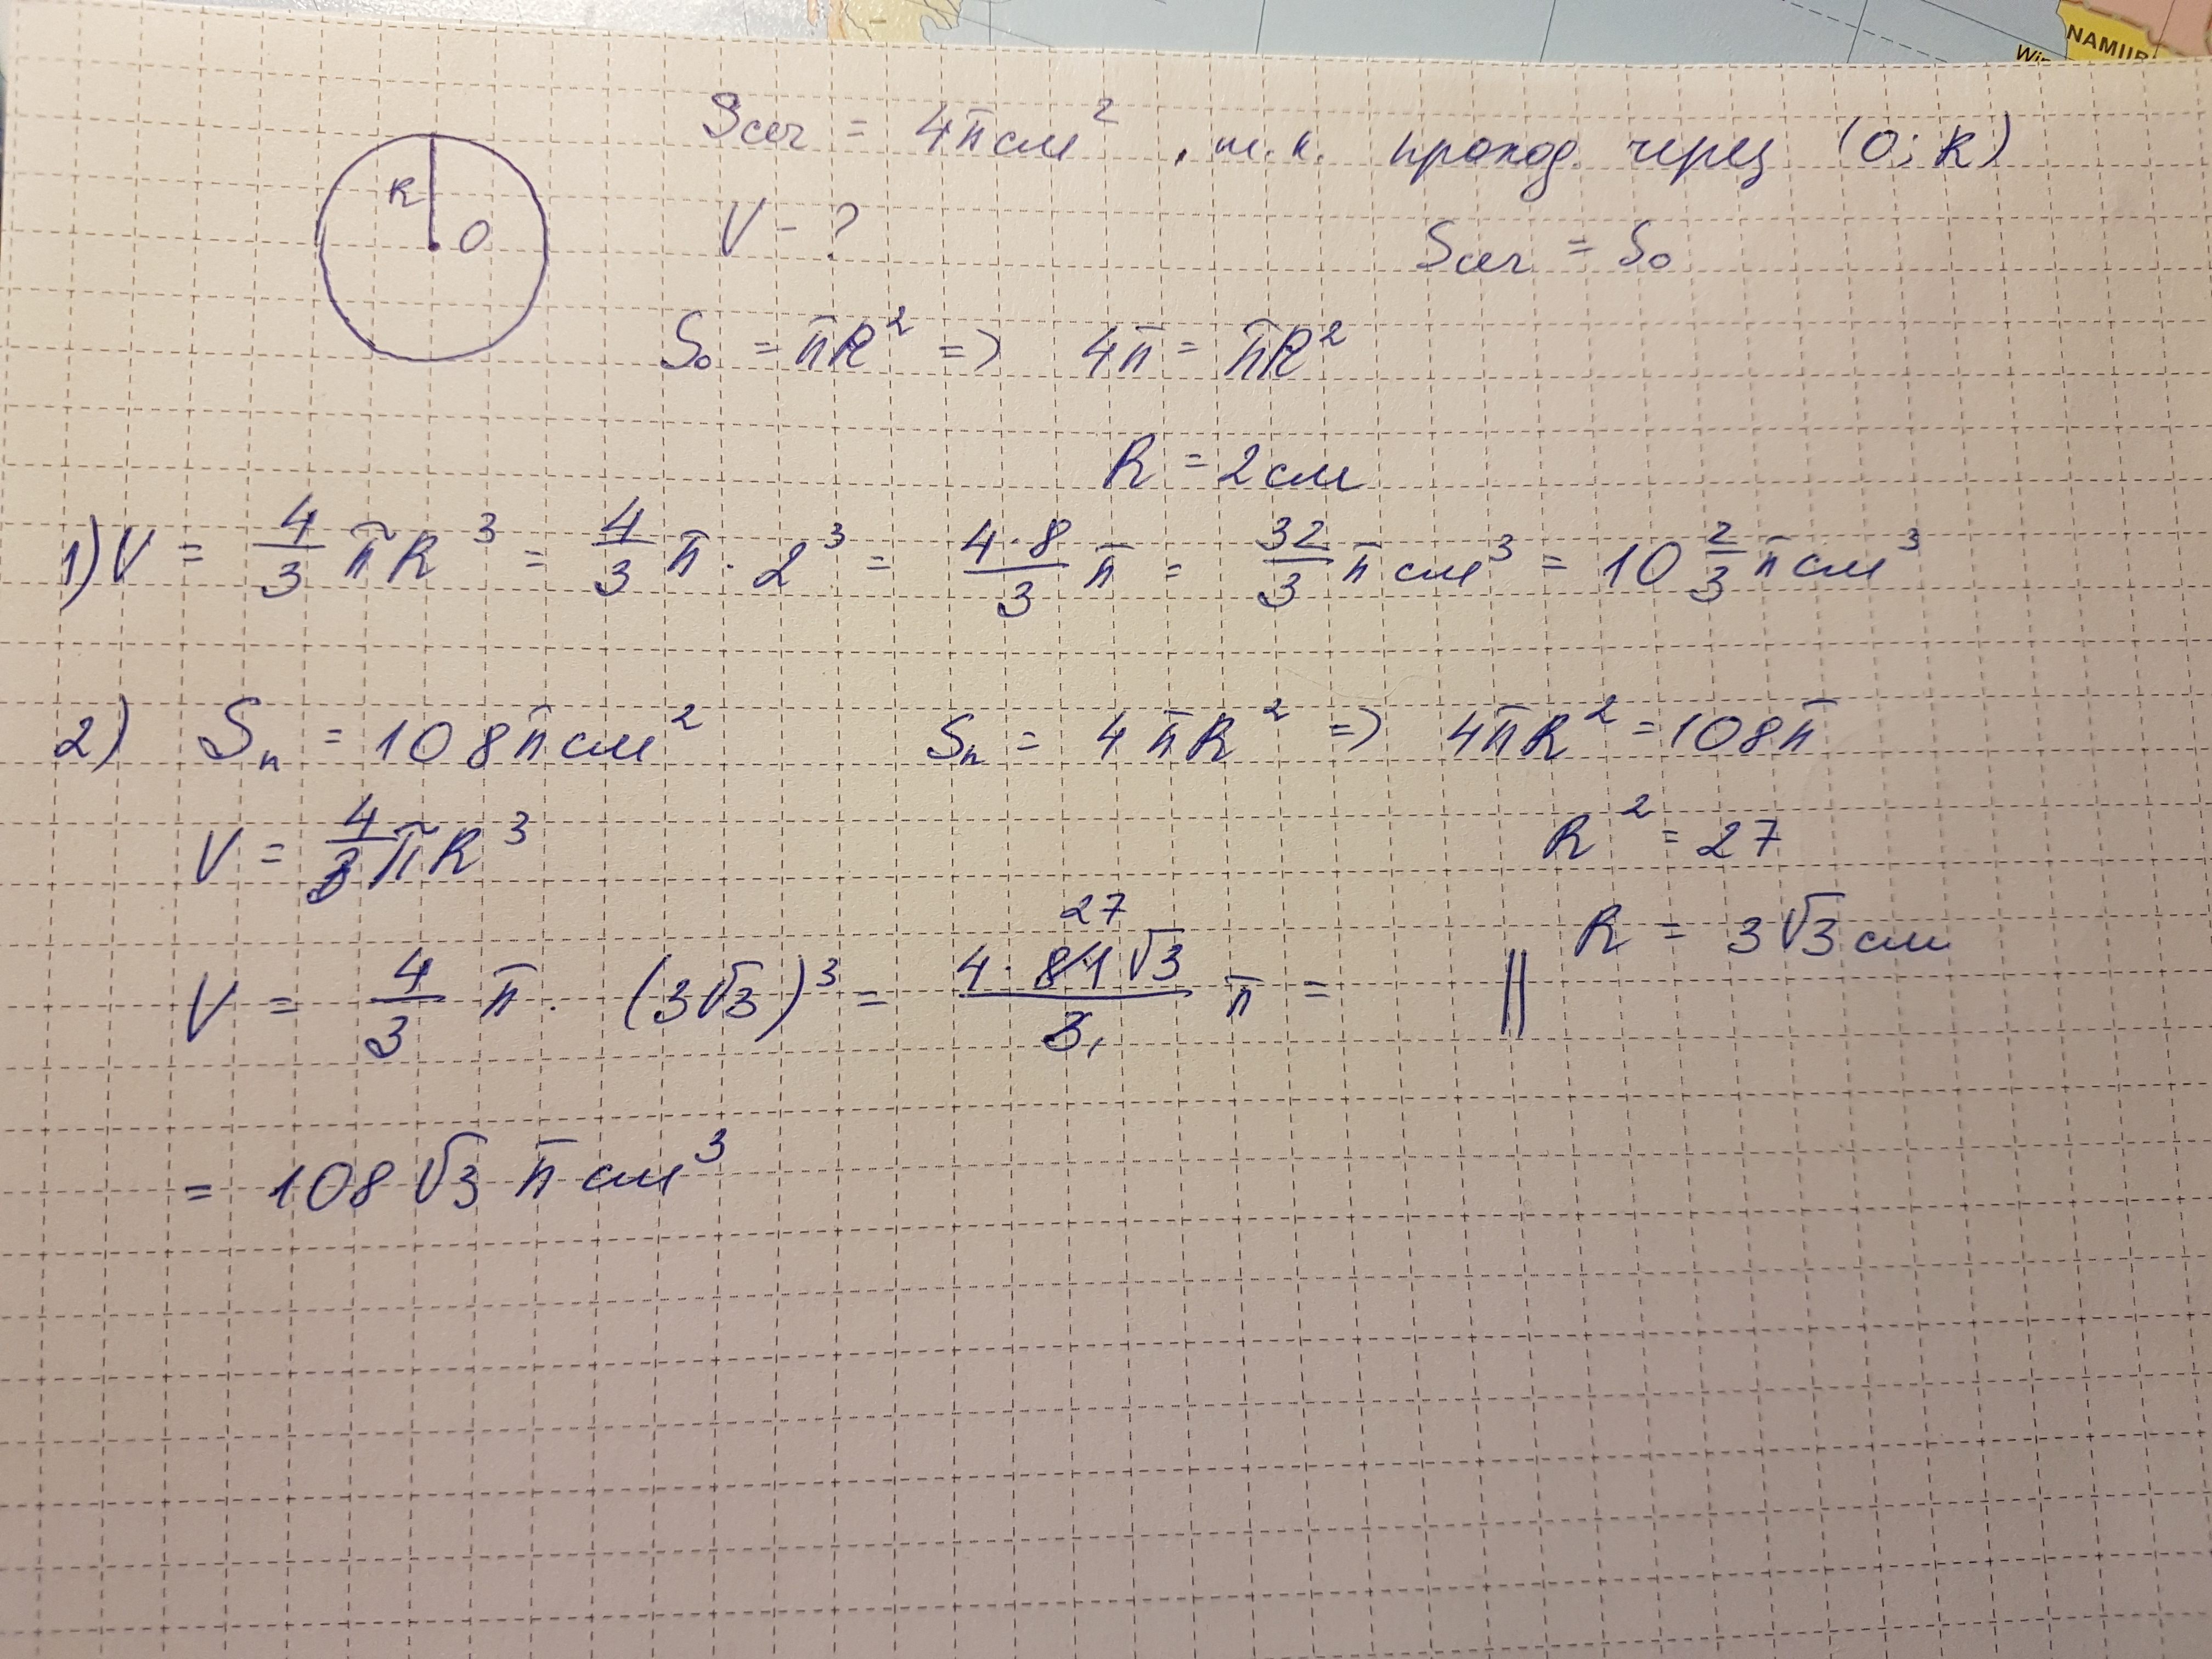 NAMIIB
Win
Sсеч = 4π см², т.к. проход. через (O; R)
R
O
V - ?
Sсеч = S₀
S₀ = πR² => 4π = πR²
R = 2 см
1) V = 4/3 πR³ = 4/3 π · 2³ = 4·8/3 π = 32/3 π см³ = 10 2/3 π см³
2) Sп = 108π см² Sп = 4πR² => 4πR² = 108π
V = 4/3 πR³
R² = 27
R = 3√3 см
V = 4/3 π · (3√3)³ = 4·81√3/3 π = ||
27
1
= 108√3 π см³